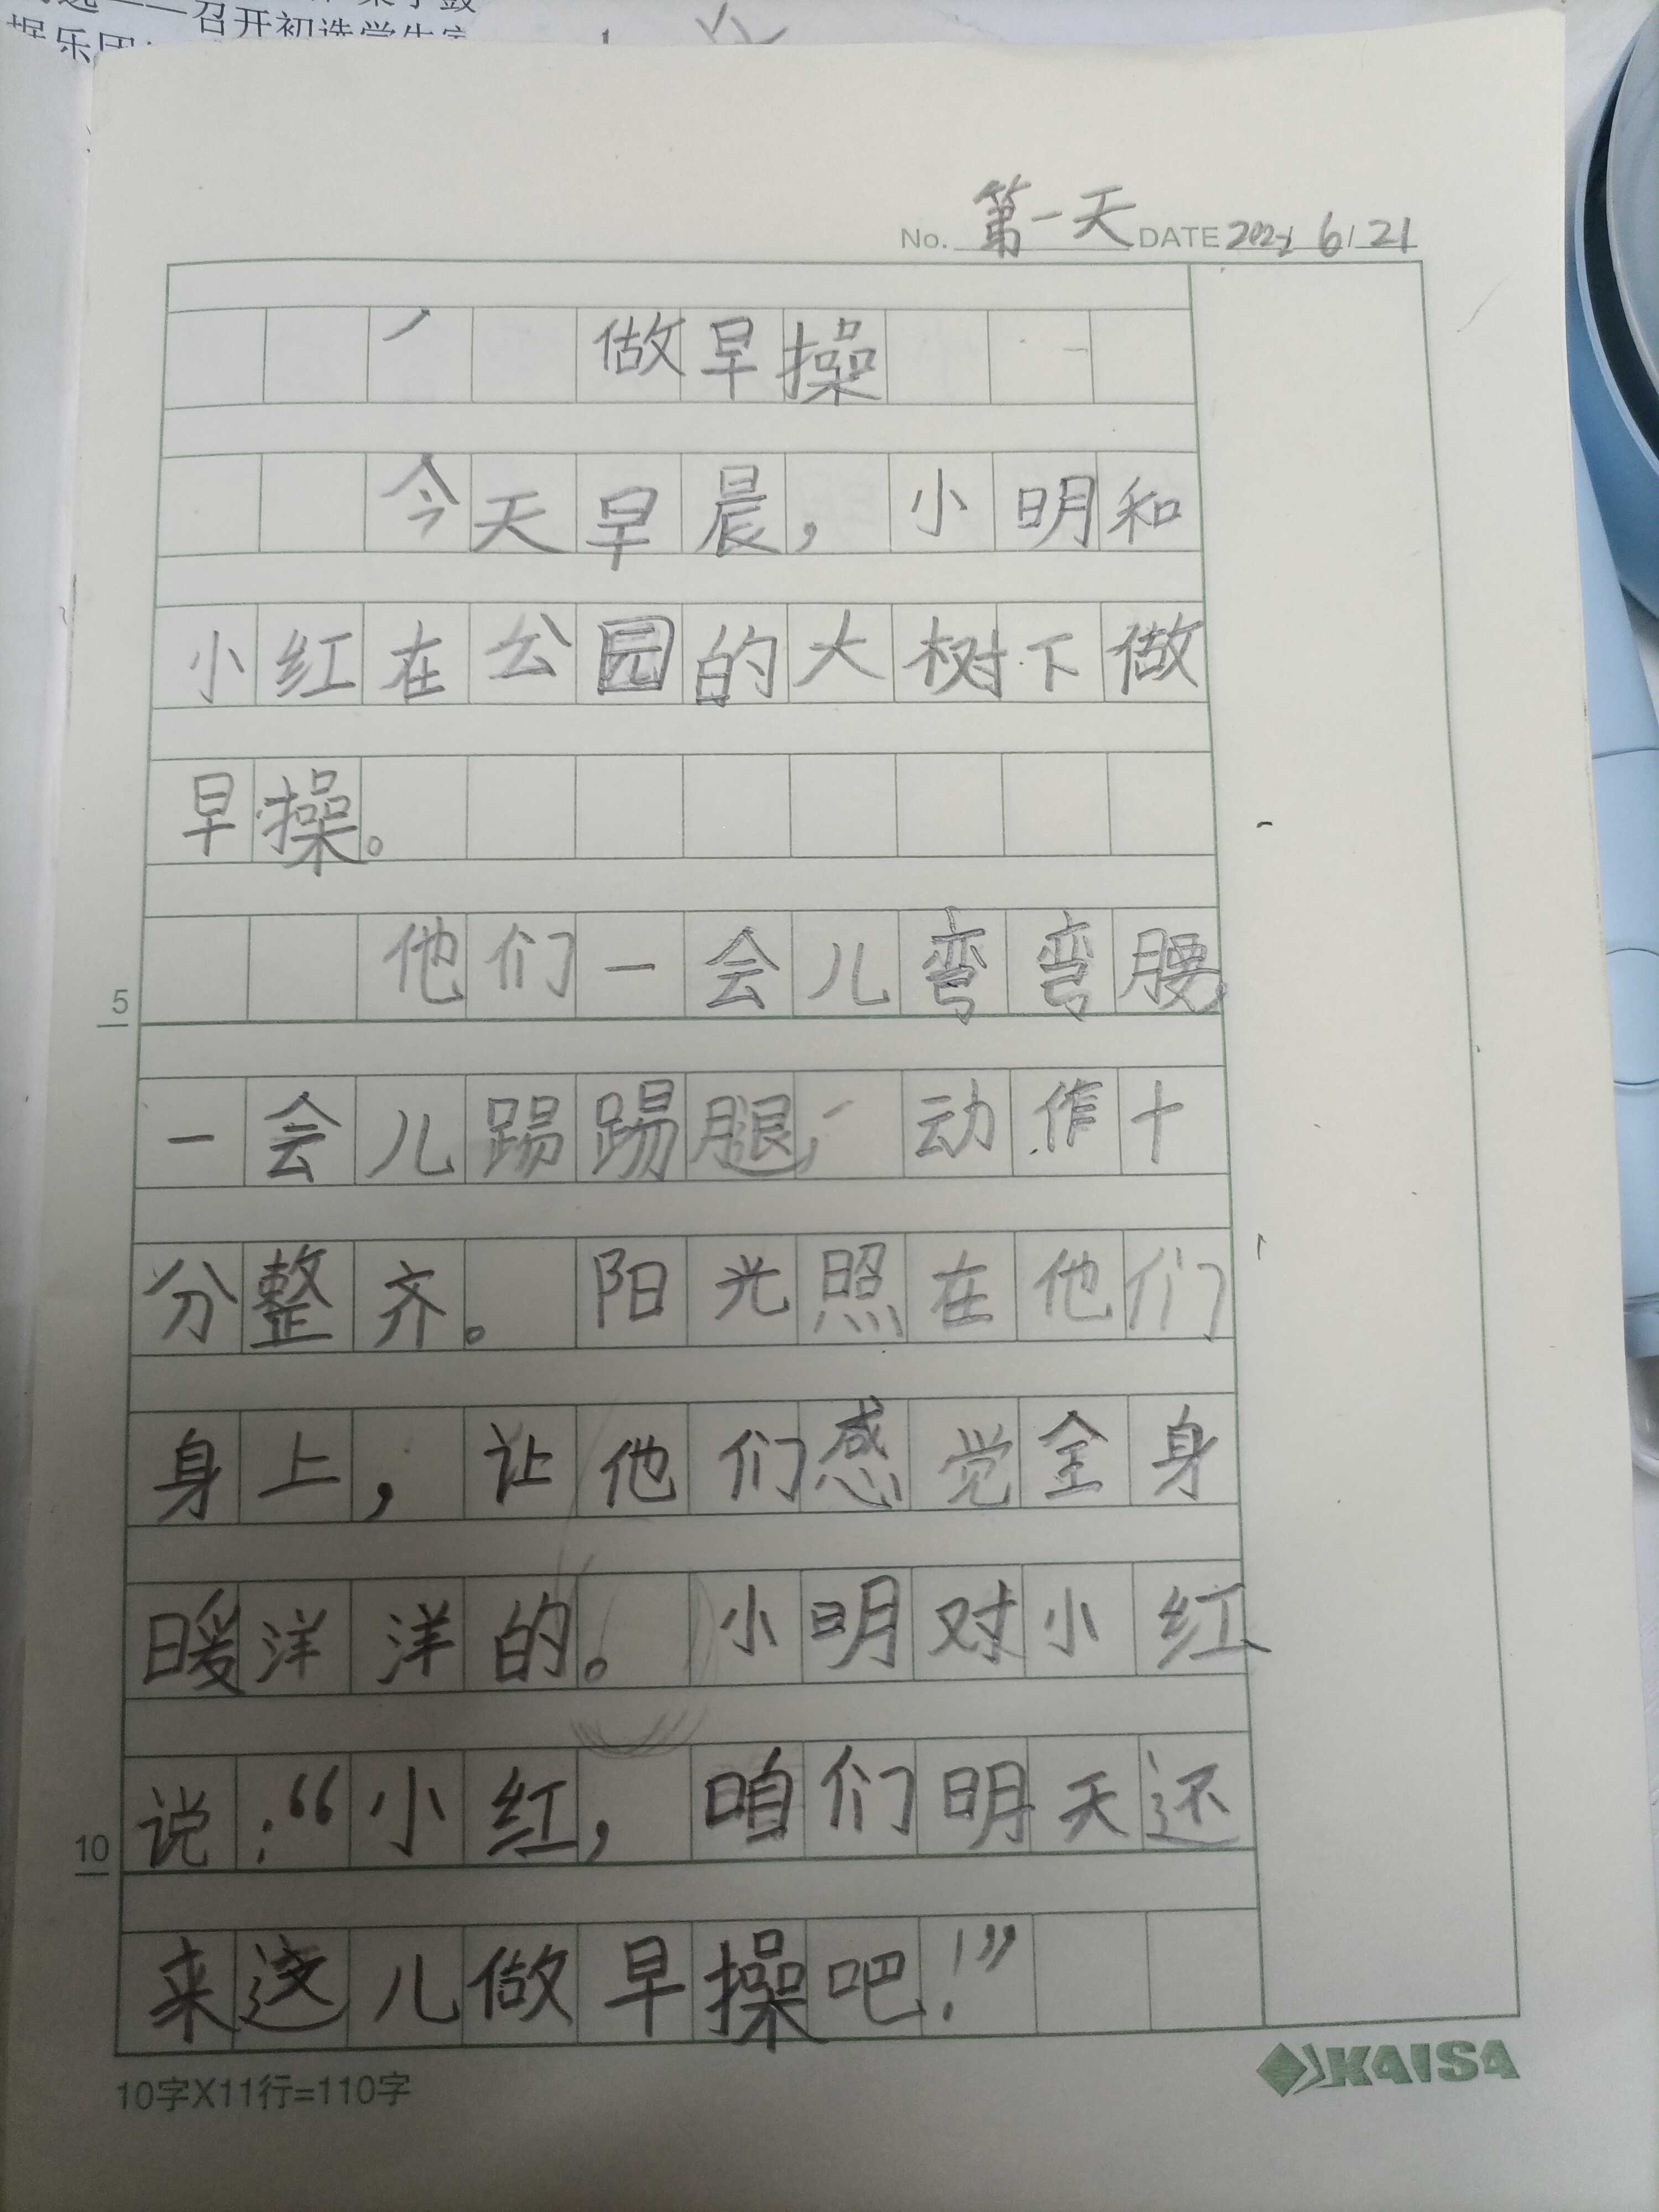 召开初选学生家
据乐团
No. 第一天 DATE 6/21
做早操
今天早晨，小明和
小红在公园的大树下做
早操。
他们一会儿弯弯腰，
5
一会儿踢踢腿，动作十
分整齐。阳光照在他们
身上，让他们感觉全身
暖洋洋的。小明对小红
说：“小红，咱们明天还
10
来这儿做早操吧！”
10字X11行=110字
KAISA